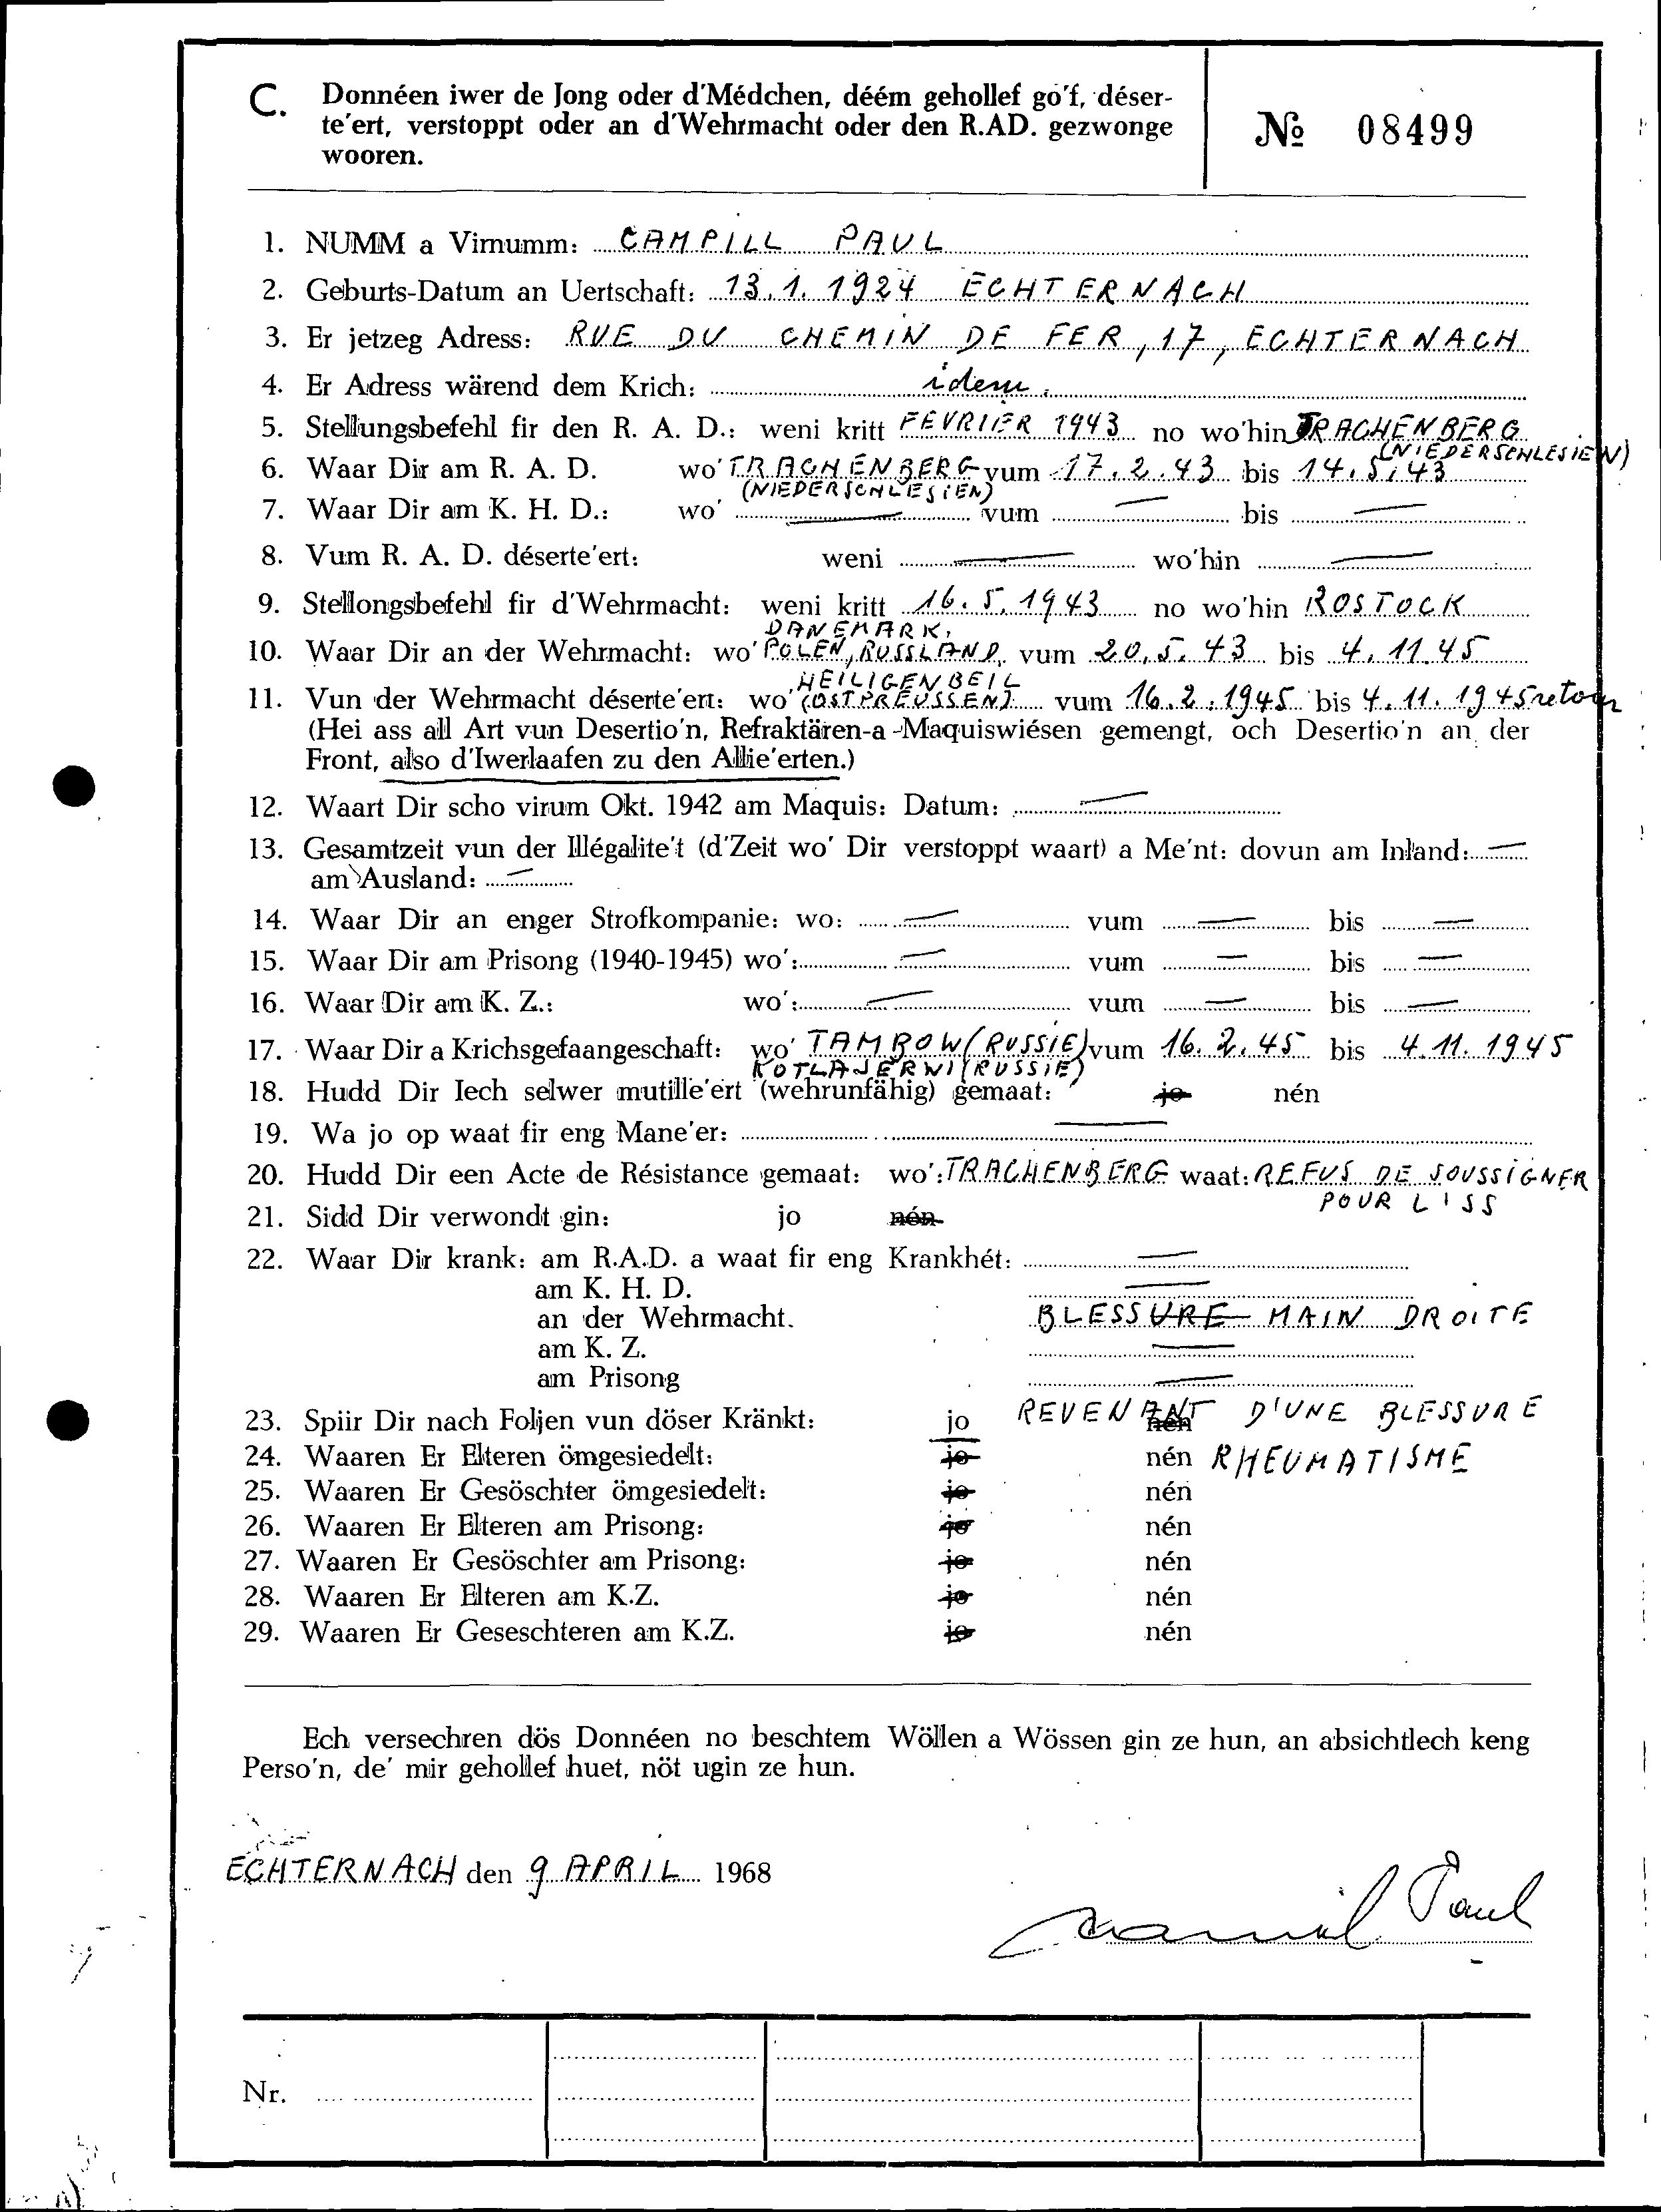 C. Donnéen iwer de Jong oder d'Médchen, déém gehollef go'f, déser-
te'ert, verstoppt oder an d'Wehrmacht oder den R.AD. gezwonge
wooren.
№ 08499
1. NUMM a Virnumm: CAMPILL PAUL
2. Geburts-Datum an Uertschaft: 13.1.1924 ECHTERNACH
3. Er jetzeg Adress: RUE DU CHEMIN DE FER, 17, ECHTERNACH
4. Er Adress wärend dem Krich: idem.
5. Stellungsbefehl fir den R. A. D.: weni kritt FEVRIER 1943 no wo'hin TRACHENBERG
(NIEDERSCHLESIEN)
6. Waar Dir am R. A. D. wo' TRACHENBERG vum 17.2.43 bis 14.5.43
(NIEDERSCHLESIEN)
7. Waar Dir am K. H. D.: wo' — vum — bis —
8. Vum R. A. D. déserte'ert: weni — wo'hin —
9. Stellongsbefehl fir d'Wehrmacht: weni kritt 16.5.1943 no wo'hin ROSTOCK
DANEMARK,
10. Waar Dir an der Wehrmacht: wo' POLEN, RUSSLAND, vum 20.5.43 bis 4.11.45
HEILIGENBEIL
11. Vun der Wehrmacht déserte'ert: wo' (OSTPREUSSEN) vum 16.2.1945 bis 4.11.1945 retour
(Hei ass all Art vun Desertio'n, Refraktären-a -Maquiswiésen gemengt, och Desertio'n an der
Front, also d'Iwerlaafen zu den Allie'erten.)
12. Waart Dir scho virum Okt. 1942 am Maquis: Datum: —
13. Gesamtzeit vun der Illégalite't (d'Zeit wo' Dir verstoppt waart) a Me'nt: dovun am Inland: —
am Ausland: —
14. Waar Dir an enger Strofkompanie: wo: — vum — bis —
15. Waar Dir am Prisong (1940-1945) wo': — vum — bis —
16. Waar Dir am K. Z.: wo': — vum — bis —
17. Waar Dir a Krichsgefaangeschaft: wo' TAMBOW (RUSSIE) vum 16.2.45 bis 4.11.1945
KOTLAJERWI (RUSSIE)
18. Hudd Dir Iech selwer mutille'ert (wehrunfähig) gemaat: jo nén
19. Wa jo op waat fir eng Mane'er: —
20. Hudd Dir een Acte de Résistance gemaat: wo': TRACHENBERG waat: REFUS DE SOUSSIGNER
POUR L'SS
21. Sidd Dir verwondt gin: jo nén
22. Waar Dir krank: am R.A.D. a waat fir eng Krankhét: —
am K. H. D. —
an der Wehrmacht. BLESSURE MAIN DROITE
am K. Z. —
am Prisong —
23. Spiir Dir nach Foljen vun döser Kränkt: jo nén REVENANT D'UNE BLESSURE
24. Waaren Er Elteren ömgesiedelt: jo nén RHEUMATISME
25. Waaren Er Gesöschter ömgesiedelt: jo nén
26. Waaren Er Elteren am Prisong: jo nén
27. Waaren Er Gesöschter am Prisong: jo nén
28. Waaren Er Elteren am K.Z. jo nén
29. Waaren Er Geseschteren am K.Z. jo nén
Ech versechren dös Donnéen no beschtem Wöllen a Wössen gin ze hun, an absichtlech keng
Perso'n, de' mir gehollef huet, nöt ugin ze hun.
ECHTERNACH den 9 APRIL 1968
Paul
Nr.